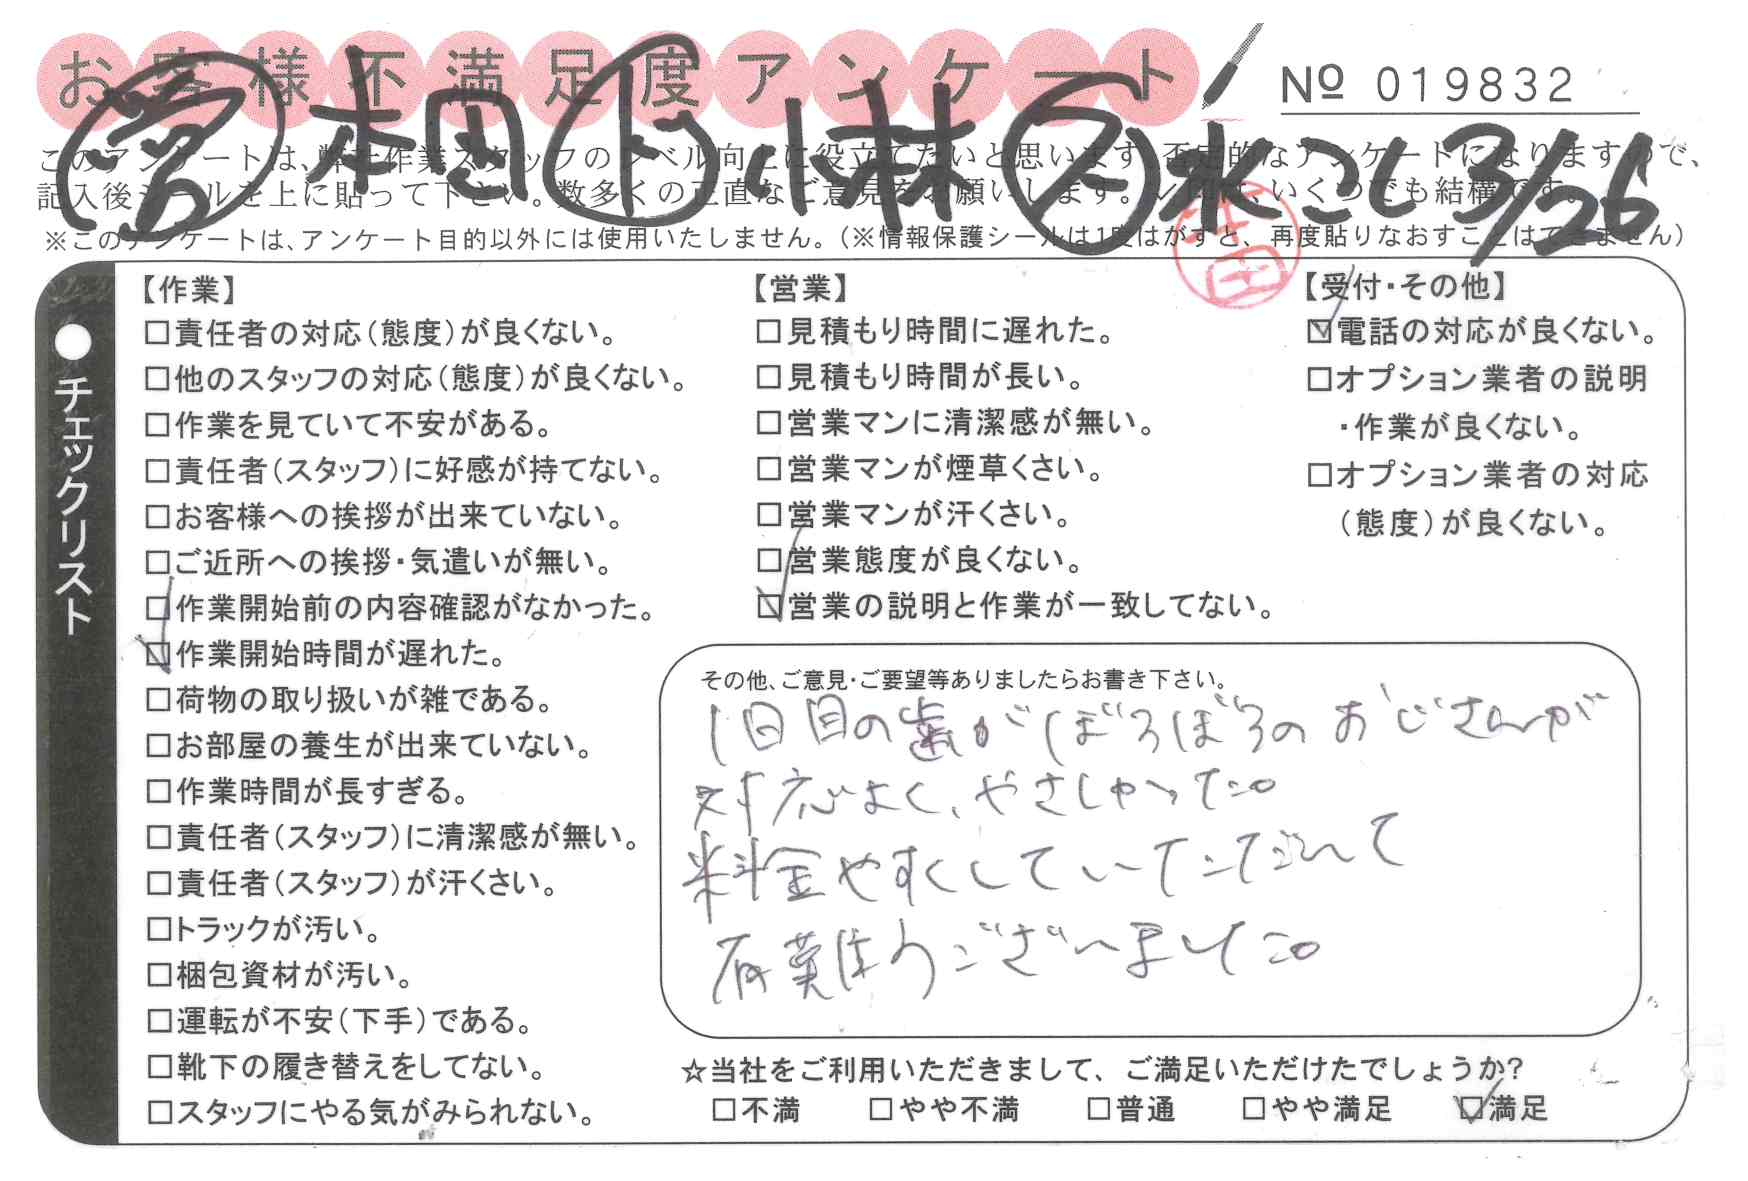 お客様不満足度アンケート
№ 019832
営 本田 ト 小林 ス 水こし 3/26
このアンケートは、弊社作業スタッフのレベル向上に役立てたいと思います。否定的なアンケートになりますので、
記入後シールを上に貼って下さい。数多くの正直なご意見をお願いします。いくつでも結構です。
※このアンケートは、アンケート目的以外には使用いたしません。(※情報保護シールは1度はがすと、再度貼りなおすことはできません)
●チェックリスト
【作業】
□責任者の対応(態度)が良くない。
□他のスタッフの対応(態度)が良くない。
□作業を見ていて不安がある。
□責任者(スタッフ)に好感が持てない。
□お客様への挨拶が出来ていない。
□ご近所への挨拶・気遣いが無い。
□作業開始前の内容確認がなかった。
☑作業開始時間が遅れた。
□荷物の取り扱いが雑である。
□お部屋の養生が出来ていない。
□作業時間が長すぎる。
□責任者(スタッフ)に清潔感が無い。
□責任者(スタッフ)が汗くさい。
□トラックが汚い。
□梱包資材が汚い。
□運転が不安(下手)である。
□靴下の履き替えをしてない。
□スタッフにやる気がみられない。
【営業】
□見積もり時間に遅れた。
□見積もり時間が長い。
□営業マンに清潔感が無い。
□営業マンが煙草くさい。
□営業マンが汗くさい。
□営業態度が良くない。
☑営業の説明と作業が一致してない。
【受付・その他】
☑電話の対応が良くない。
□オプション業者の説明
・作業が良くない。
□オプション業者の対応
(態度)が良くない。
その他、ご意見・ご要望等ありましたらお書き下さい。
1日目の歯がぼろぼろのおじさんが
対応よく、やさしかった。
料金やすくしていただいて
有難うございました。
☆当社をご利用いただきまして、ご満足いただけたでしょうか?
□不満 □やや不満 □普通 □やや満足 ☑満足